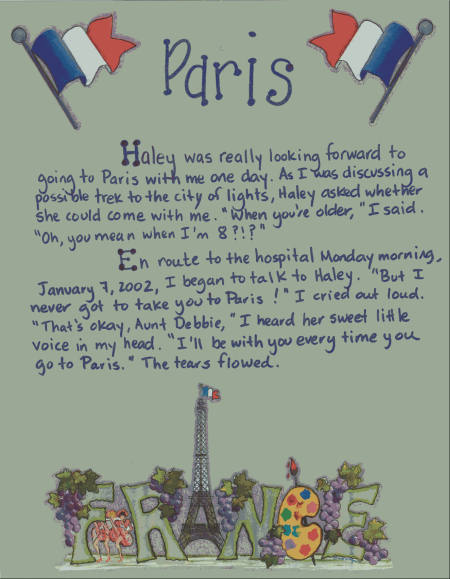 Paris
Haley was really looking forward to
going to Paris with me one day. As I was discussing a
possible trek to the city of lights, Haley asked whether
she could come with me. "When you're older," I said.
"Oh, you mean when I'm 8?!?"
En route to the hospital Monday morning,
January 7, 2002, I began to talk to Haley. "But I
never got to take you to Paris!" I cried out loud.
"That's okay, Aunt Debbie," I heard her sweet little
voice in my head. "I'll be with you every time you
go to Paris." The tears flowed.
FRANCE